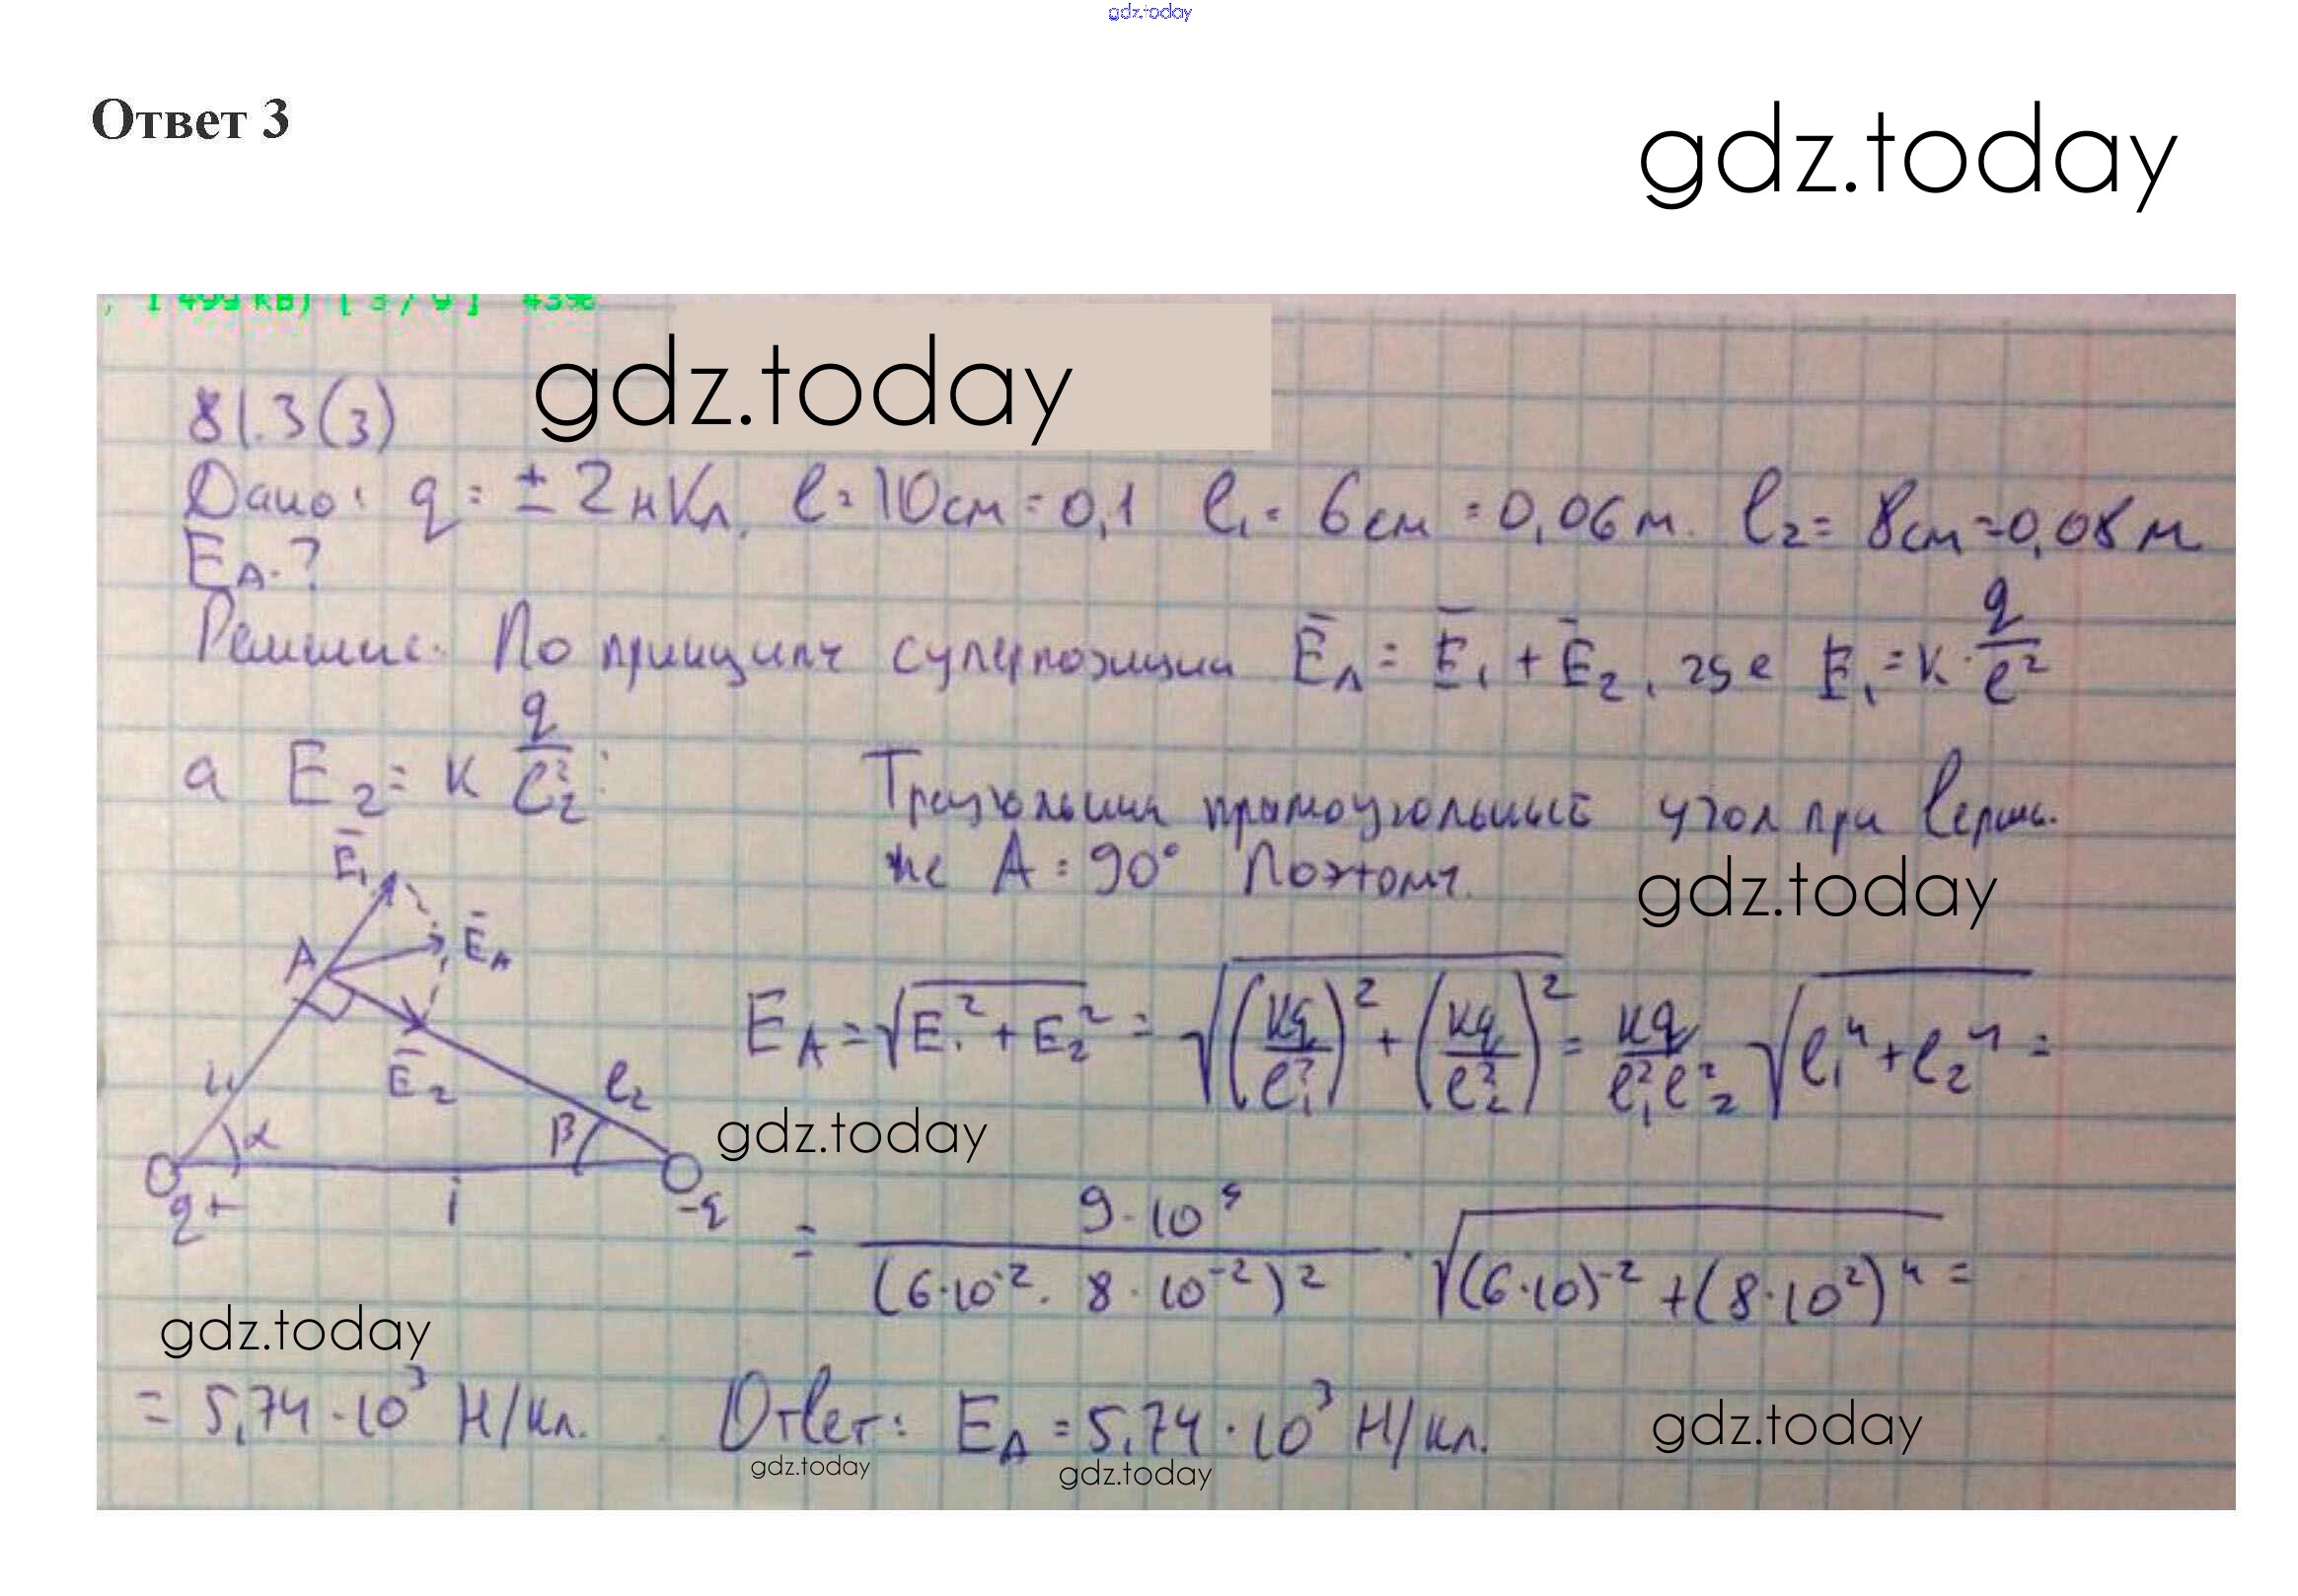 gdz.today
Ответ 3
gdz.today
gdz.today
81.3(3)
Дано: q = ± 2 нКл, l = 10см = 0,1 l₁ = 6см = 0,06 м. l₂ = 8см = 0,08 м
E_A - ?
Решение. По принципу суперпозиции Ē_A = Ē₁ + Ē₂, где E₁ = к · q/l²
а E₂ = к q/l₂²
Треугольник прямоугольный угол при верши-
не A = 90° Поэтому.
gdz.today
Ē₁
A
Ē_A
Ē₂
l₂
α
β
q+
-q
E_A = √(E₁² + E₂²) = √((кq/l₁²)² + (кq/l₂²)²) = кq/(l₁² l₂²) √(l₁⁴ + l₂⁴) =
gdz.today
= 9·10⁹/(6·10⁻² · 8·10⁻²)² · √((6·10)⁻² + (8·10²)⁴) =
gdz.today
= 5,74·10³ Н/кл. Ответ: E_A = 5,74·10³ Н/кл.
gdz.today
gdz.today
gdz.today